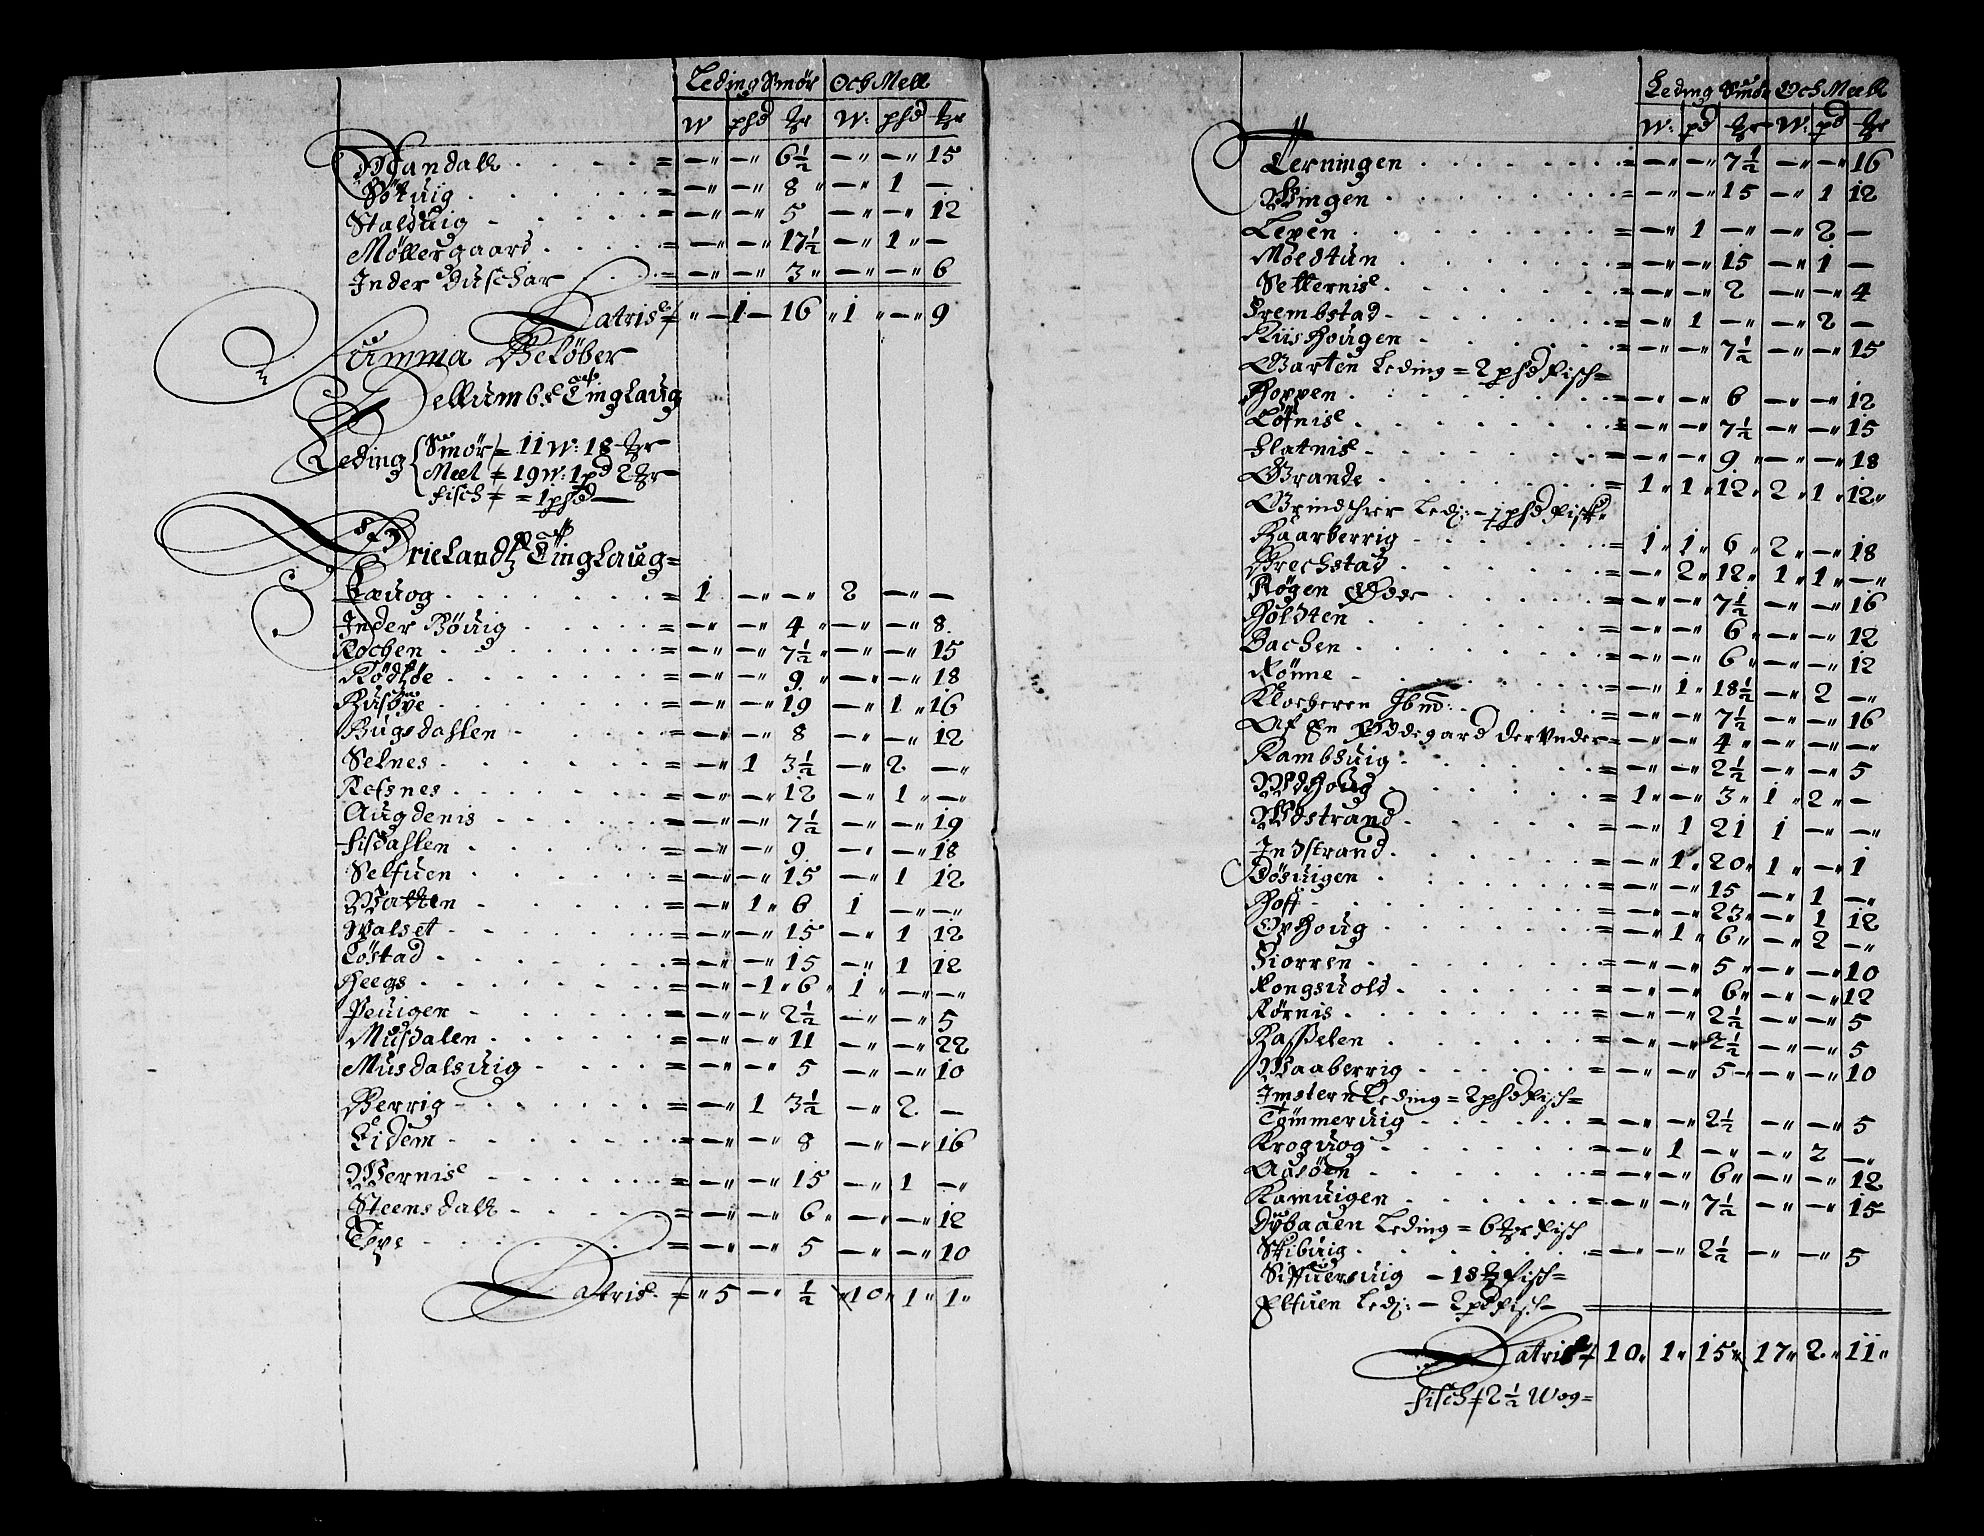 Leding Smør Och Mell
W phd ℔ W: phd ℔
Wandall = — — 6½ — — 15
Bötuig = — — 8 — 1 —
Stalduig = — — 5 — — 12
Møllergaard = — — 17½ — 1 —
Inder Duschar = — — 3 — — 6
Latris = — 1 — 16 1 — 9
Summa Beløber
af
Tellumbs Tinglaug
Leding
Smør = 11 W: 18 ℔
Meel = 19 W: 1 pd 2 ℔
fisch = 1 phd —
Ørielandtz Tinglaug =
Tæuog = 1 — — 2 — —
Inder Böuig = — — 4 — — 8
Rochen = — — 7½ — — 15
= — — 9 — — 18
= — — 19 — 1 16
Bugsdahlen — — 8 — — 12
Selnes = — 1 3½ — 2 —
Refsnes = — — 12 — 1 —
Augdenis = — — 7½ — — 19
fisdahlen = — — 9 — — 18
Selfuen = — — 15 — 1 12
Watten = — 1 6 1 — —
Walset = — — 15 — 1 12
Løstad = — — 15 — 1 12
Heegs = — 1 6 1 — —
Peuigen = — — 2½ — — 5
Musdalen = — — 11 — — 22
Musdalsuig = — — 5 — — 10
Berrig = — 1 3½ — 2 —
Eidem = — — 8 — — 16
Wernis = — — 15 — 1 —
Steensdall = — — 6 — — 12
Tøve = — — 5 — — 10
Latris 5 — ½ 10 1 1
Leding Smør Och Meell
W: pd ℔ W: pd ℔
Terningen = — — 7½ — — 16
Wingen = — — 15 — 1 12
Leyen = — 1 — — 2 —
Moldtun = — — 15 — 1 —
Setternis = — — 2 — — 4
Brembstad = — 1 — — 2 —
Kiishougen = — — 7½ — — 15
Garten Leding = 2 phd fisch =
Hoppen = — — 6 — — 12
Löfnis = — — 7½ — — 15
flatnis = — — 9 — — 18
Grande = 1 1 12 2 1 12
Grindscher Ledj: — 1 phd fisk
Baarberrig = 1 1 6 2 — 18
Brechstad = — 2 12 1 1 —
Røgen Øder = — — 7½ — — 16
Holdten = — — 6 — — 12
Bachen = — — 6 — — 12
Rønne = — 1 18½ — 2 —
Klocheren Ibnd: = — — 7½ — — 16
Af En Øddegaard der Under = — — 4 — — —
Rambsuig = — — 2½ — — 5
Udhoug = 1 — 3 1 2 —
Udstrand = — 1 21 1 — —
Indstrand = — 1 20 1 — 1
Dösuigen = — — 15 — 1 —
Hoff = — — 23 — 1 12
Ophoug = — 1 6 — 2 —
Kiorren = — — 5 — — 10
Rongsuold = — — 6 — — 12
Rörnis = — — 2½ — — 5
Hasselen = — — 2½ — — 5
Waaberrig = — — 5 — — 10
Imstern Leding = 2 phd fisch =
Tømmeruig = — — 2½ — — 5
Kroguog = — 1 — — 2 —
Agsöen = — — 6 — — 12
Ramuigen = — — 7½ — — 15
Dybaaen Leding = 6 ℔ fisch
Skibuig = — — 2½ — — 5
Siffuersuig — 18 ℔ fisch =
Elfuen Ledj: — 2 pd fisch —
Latris 10 1 15 17 2 11
fisch 2½ Wog =